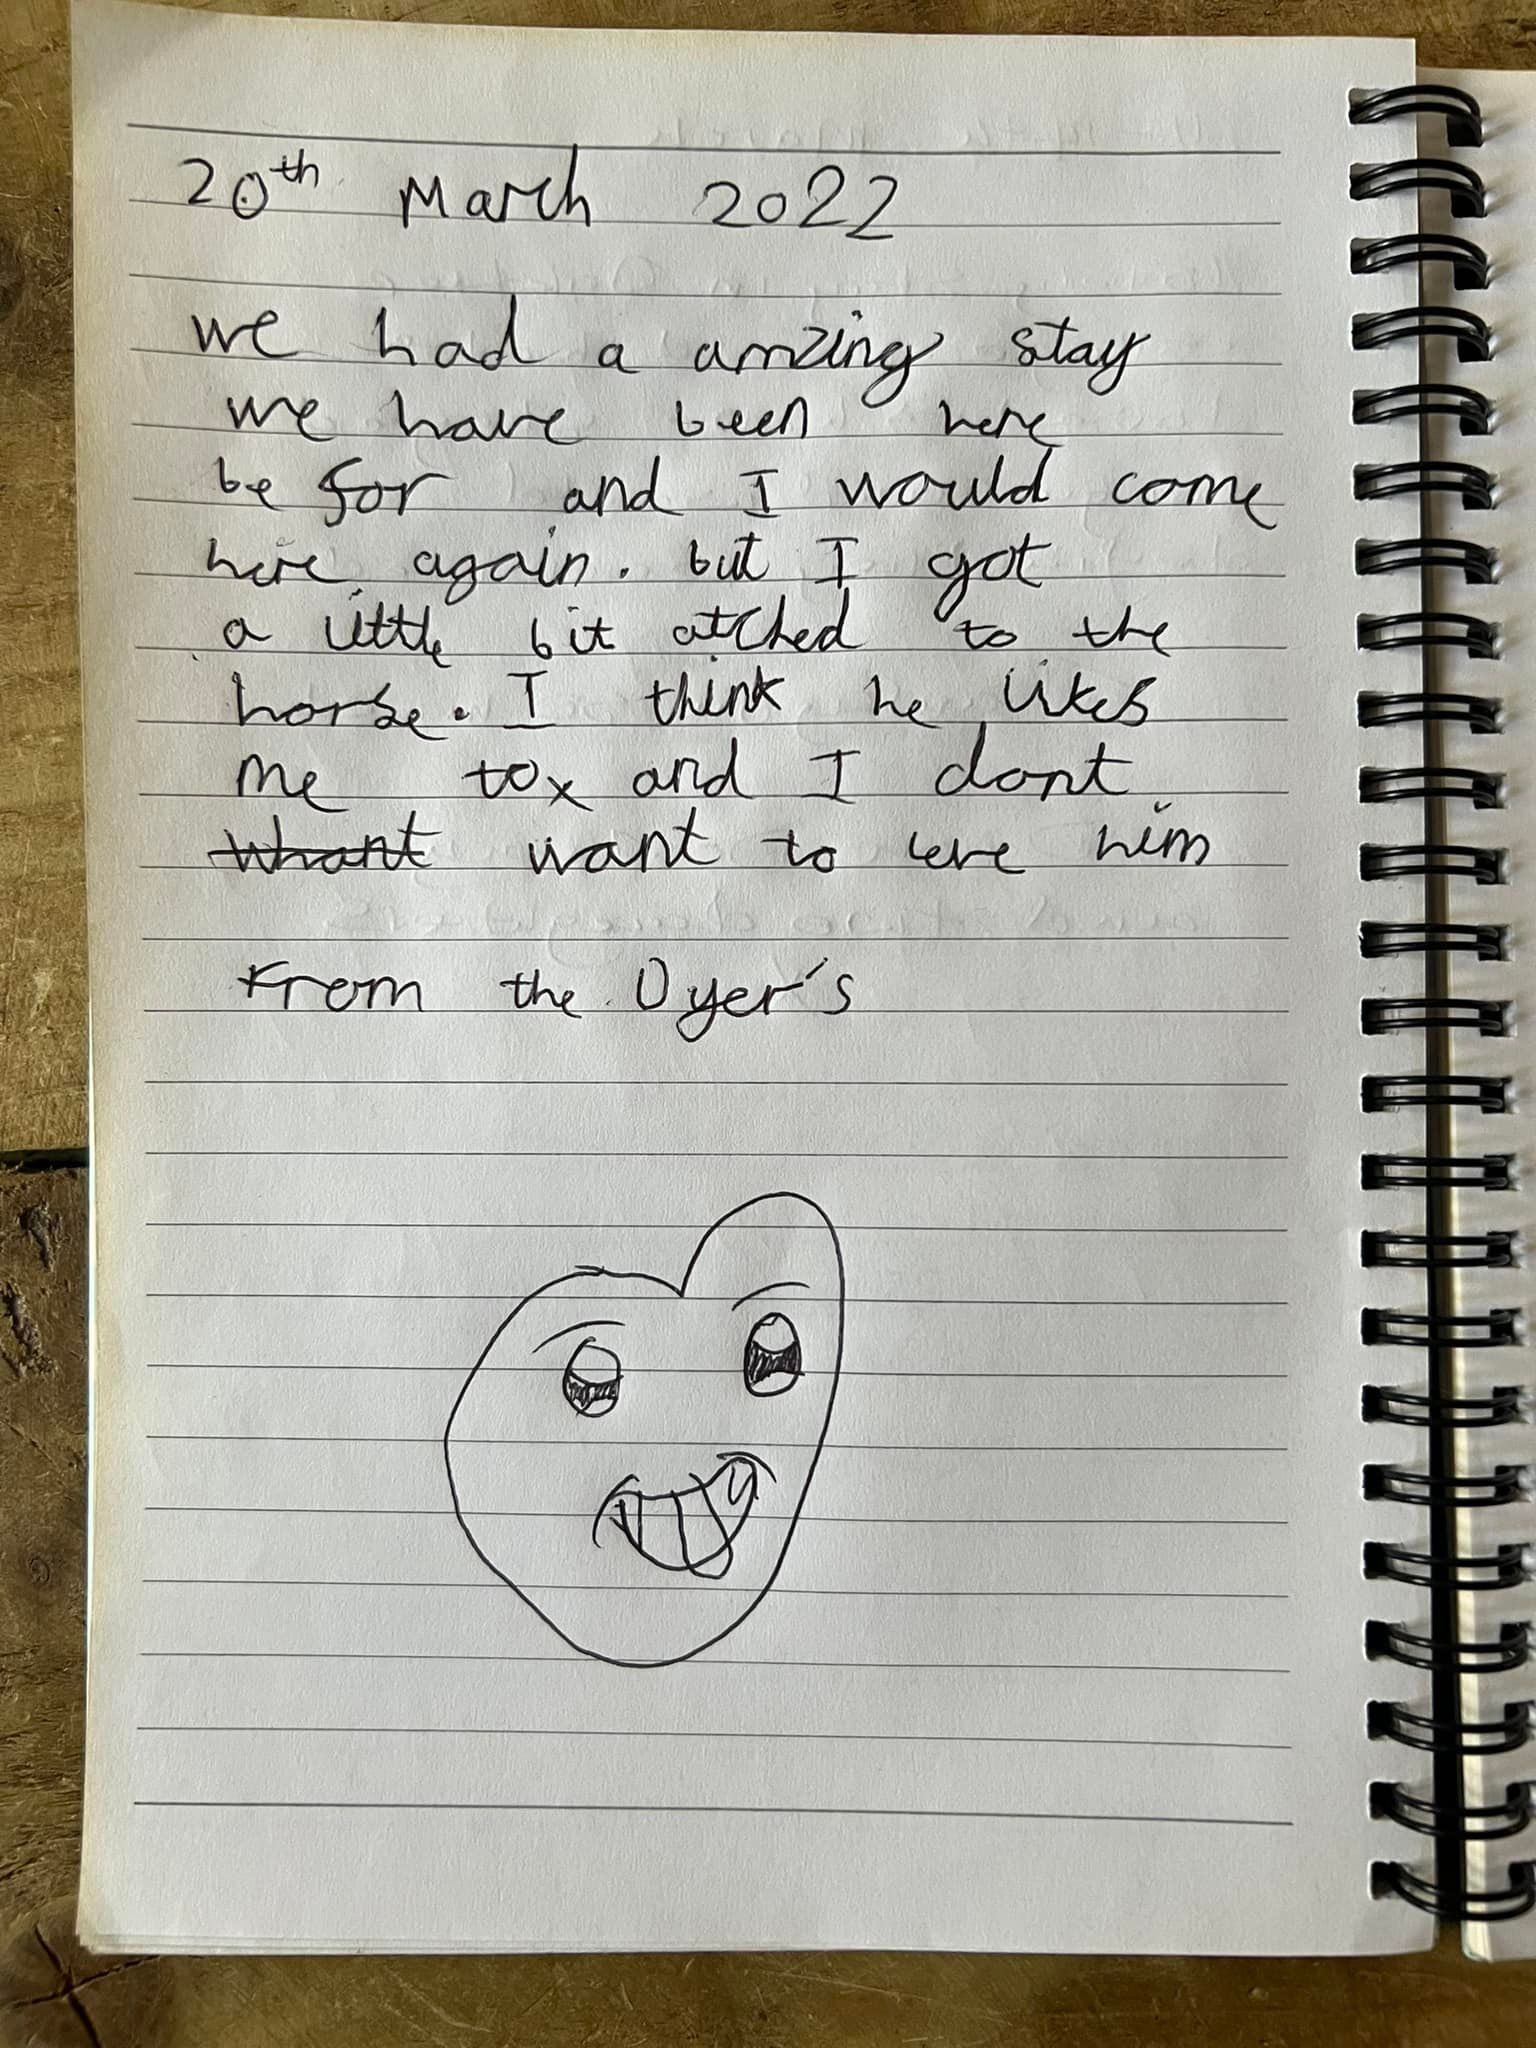 20th March 2022
we had a amzing stay
we have been here
be for and I would come
here again. but I got
a little bit atched to the
horse. I think he likes
me tox and I dont
whant want to leve him
From the Dyer's